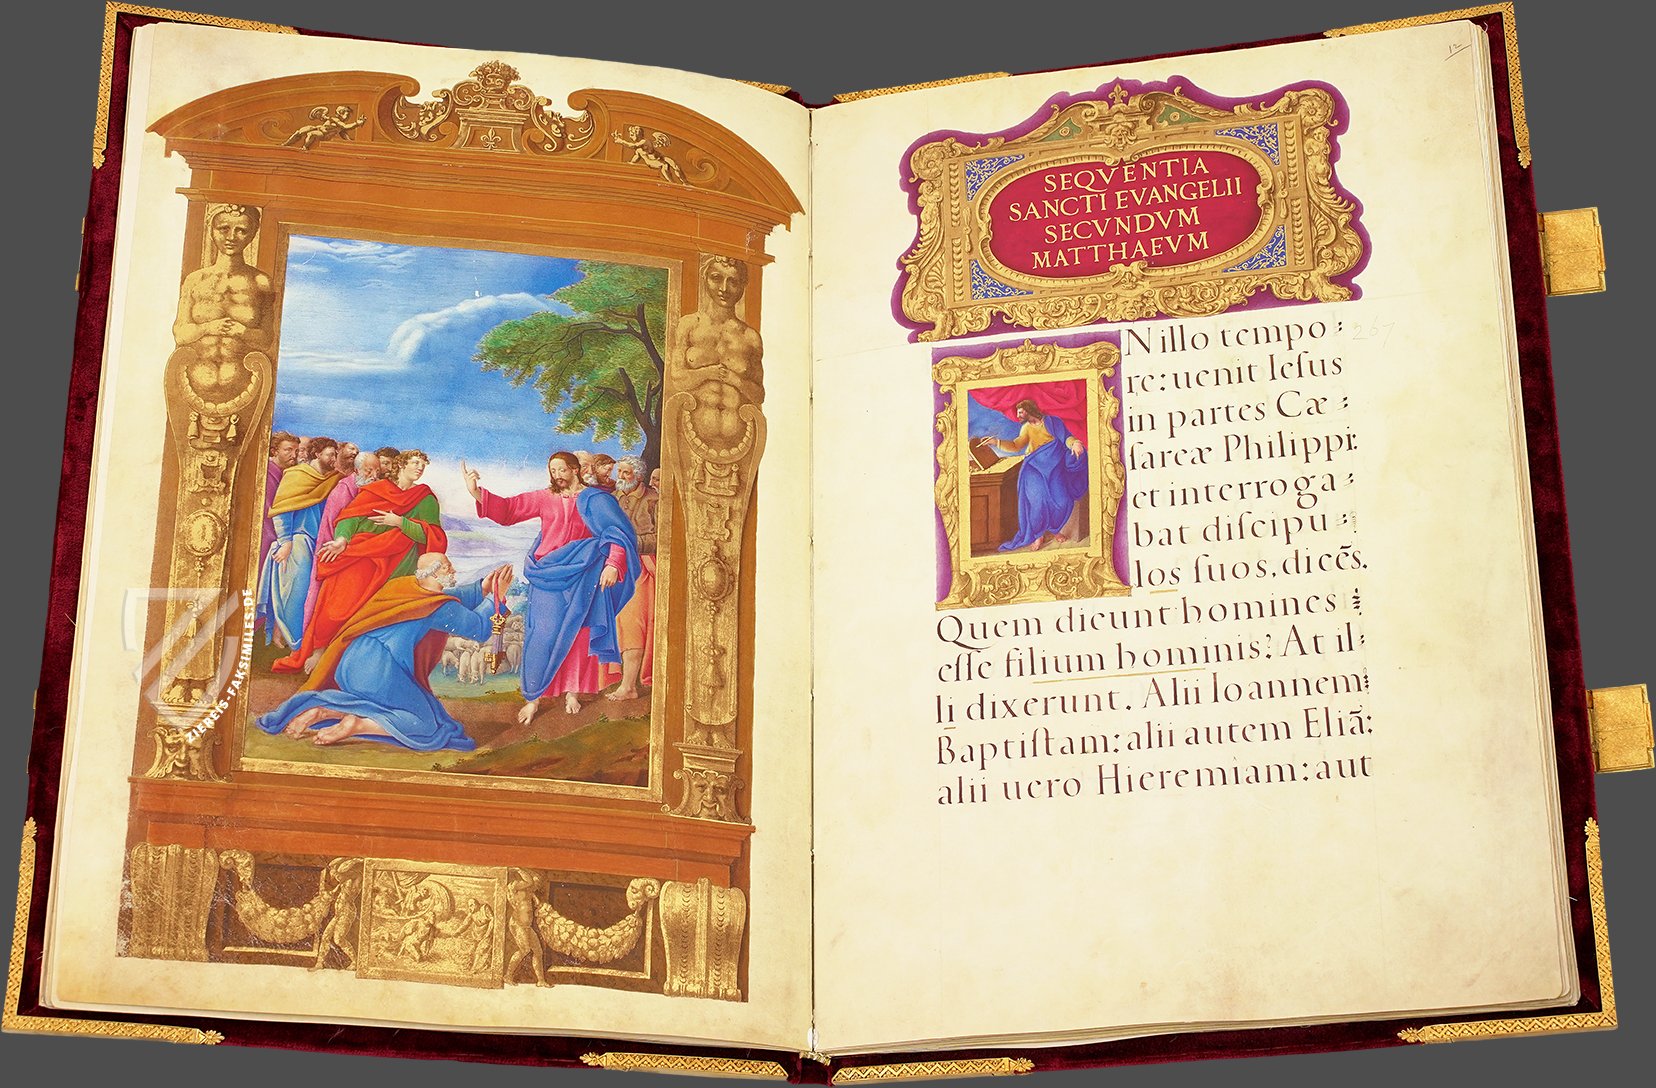 ZIEREIS-FAKSIMILES.DE
12
SEQVENTIA
SANCTI EVANGELII
SECVNDVM
MATTHAEVM
N illo tempo
267
re: uenit Iesus
in partes Cæ
sareæ Philippi:
et interroga
bat discipu
los suos, dicēs.
Quem dicunt homines
esse filium hominis? At il
li dixerunt. Alii Ioannem
Baptistam: alii autem Eliā:
alii uero Hieremiam: aut